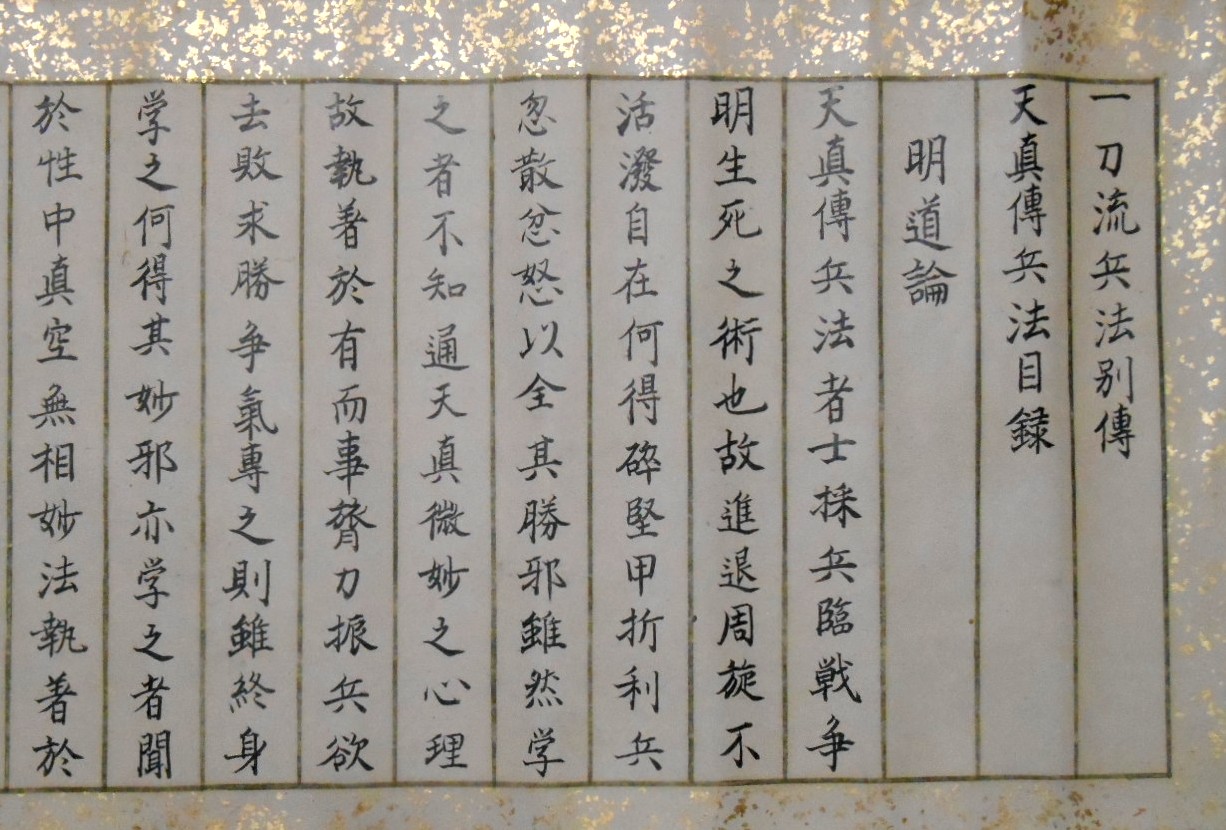 一刀流兵法別傳
天真傳兵法目録
明道論
天真傳兵法者士採兵臨戦争
明生死之術也故進退周旋不
活潑自在何得碎堅甲折利兵
忽散忿怒以全其勝邪雖然学
之者不知通天真微妙之心理
故執着於有而事膂力振兵欲
去敗求勝争氣專之則雖終身
学之何得其妙邪亦学之者聞
於性中真空無相妙法執着於